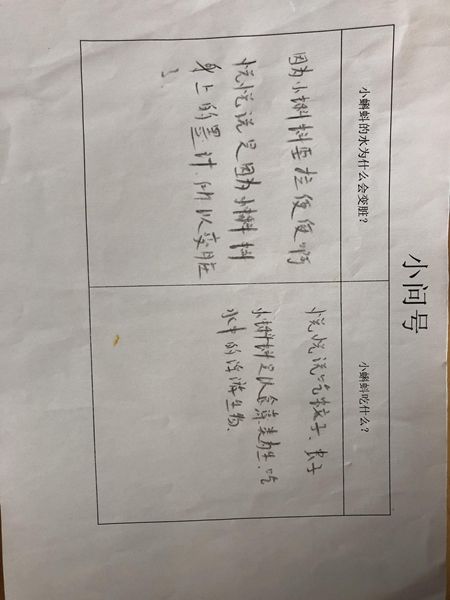 小问号
小蝌蚪的水为什么会变脏?
小蝌蚪吃什么?
因为小蝌蚪要拉便便啊
悦悦说是因为小蝌蚪
身上的墨汁所以变脏
了。
悦悦说吃蚊子、虫子
小蝌蚪是以食藻类为生、吃
水中的浮游生物。